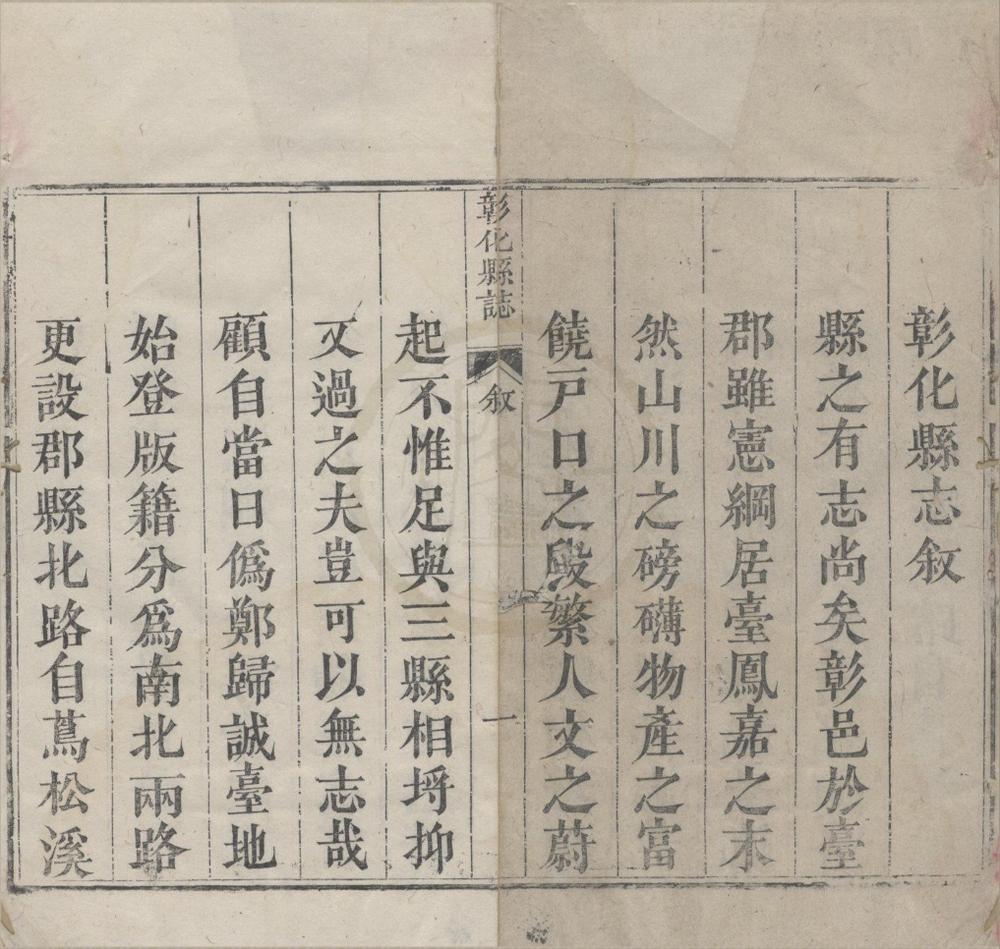 彰化縣志敘
縣之有志尚矣彰邑於臺
郡雖憲綱居臺鳳嘉之末
然山川之磅礴物產之富
饒戸口之殷繁人文之蔚
彰化縣誌
敘
一
起不惟足與三縣相埒抑
又過之夫豈可以無志哉
顧自當日僞鄭歸誠臺地
始登版籍分爲南北兩路
更設郡縣北路自蔦松溪